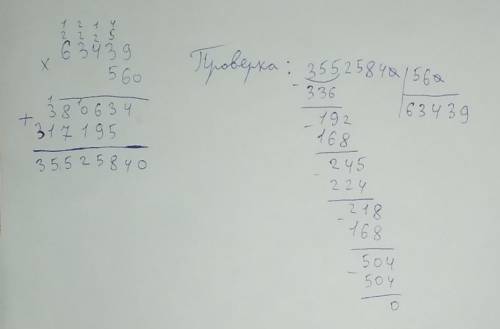 1 2 1 4
2 2 2 5
× 63439
560
1 1
+ 380634
317195
35525840
Проверка: 35525840 | 560
- 336 63439
- 192
168
- 245
224
- 218
168
- 504
504
0